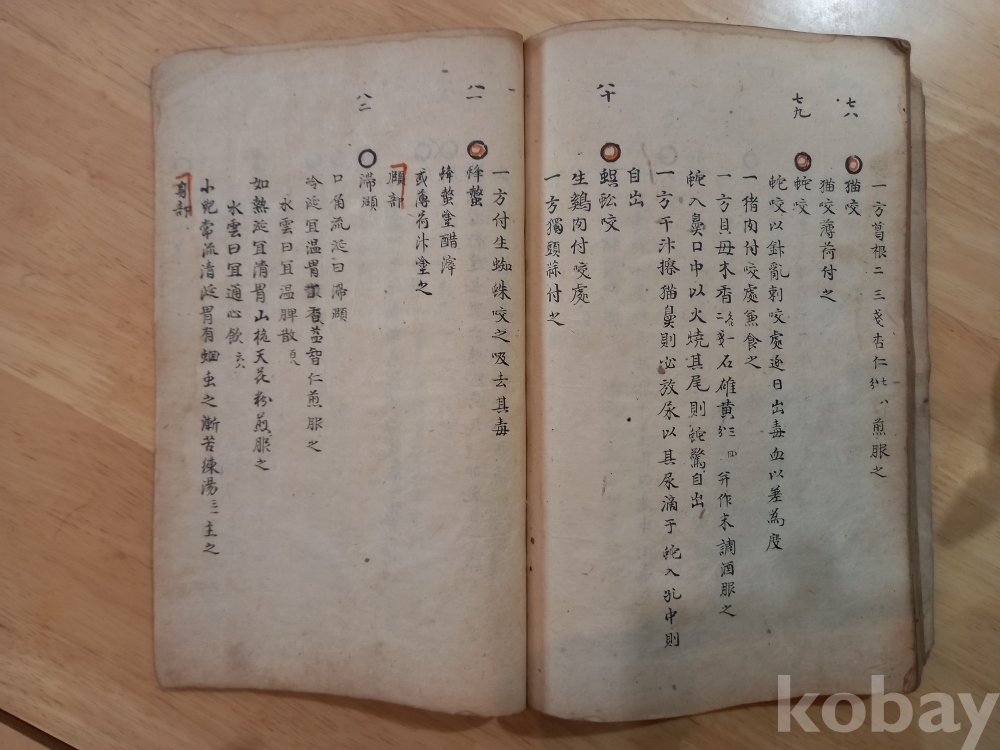 一方葛根二三戔杏仁七八分煎服之
七八
猫咬
猫咬薄荷付之
七九
蛇咬
蛇咬以針亂刺咬處逐日出毒血以差為度
一猪肉付咬處兼食之
一方貝母木香石雄黃三四分并作末調酒服之
蛇入鼻口中以火燒其尾則蛇驚自出
一方干汁擦猫鼻則必放尿以其尿滴于蛇入孔中則
自出
八十
蜈蚣咬
生鷄肉付咬處
一方獨頭蒜付之
一方付生蜘蛛咬之吸去其毒
八一
蜂螫
蜂螫塗醋滓
或薄荷汁塗之
頤部
八二
滯頤
口角流涎曰滯頤
冷涎宜温胃散香益智仁煎服之
水雲曰宜温脾散
如熱涎宜清胃山梔天花粉煎服之
水雲曰宜通心飲六八
小兒常流清涎胃有蛔虫之漸苦練湯三一主之